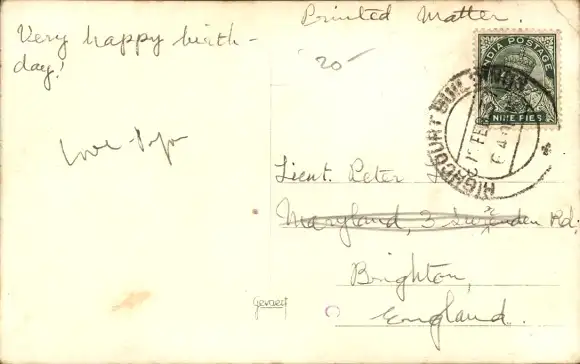 Very happy birth-
day!
Love - Papa
Printed Matter.
20-
INDIA POSTAGE
NINE PIES
HIGHCOURT BUILDINGS
FEB
Lieut. Peter
Maryland, 3 Rd,
Brighton,
England.
Gevaert